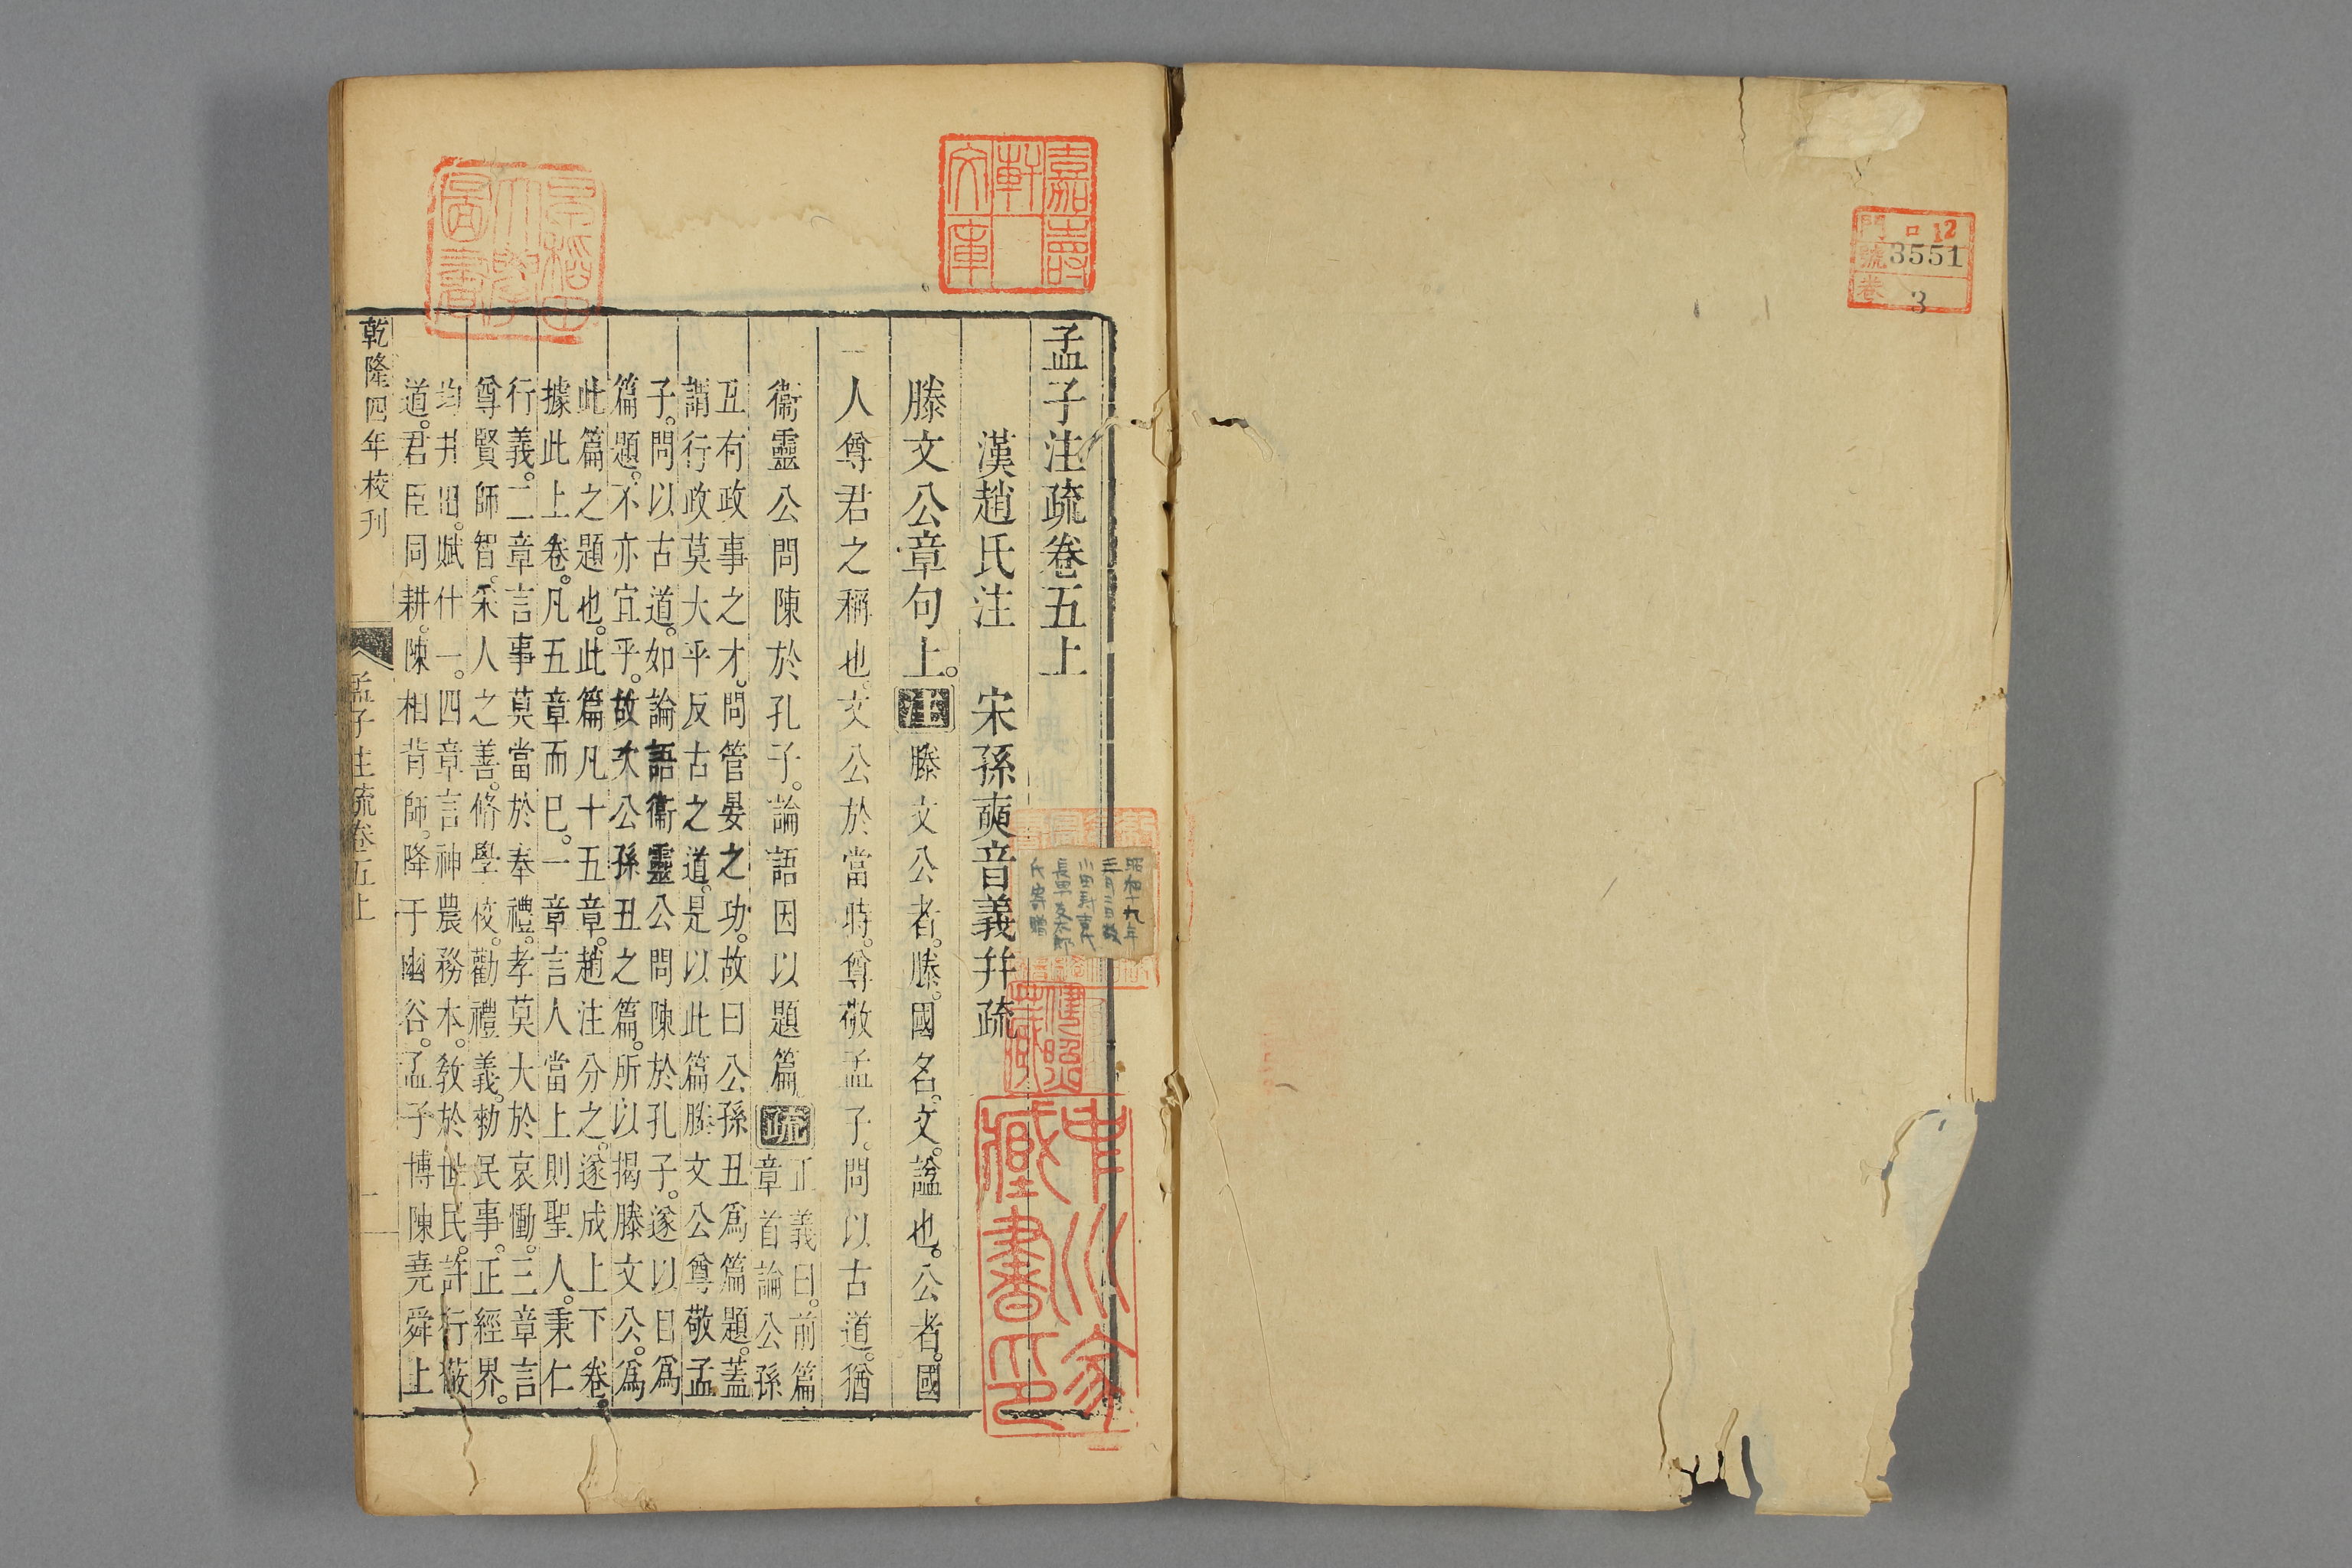 門 ロ 12
號 3551
卷 3
嘉壽軒文庫
早稻田大學圖書
孟子注疏卷五上
漢趙氏注 宋孫奭音義并疏
滕文公章句上。注滕文公者。滕。國名。文。諡也。公者。國
人尊君之稱也。文公於當時。尊敬孟子。問以古道。猶
衞靈公問陳於孔子。論語因以題篇疏
正義曰。前篇
章首論公孫
丑有政事之才。問管晏之功。故曰公孫丑爲篇題。蓋
謂行政莫大平反古之道。是以此篇滕文公尊敬孟
子。問以古道。如論語衞靈公問陳於孔子。遂以目爲
篇題。不亦宜乎。故次公孫丑之篇。所以揭滕文公。爲
此篇之題也。此篇凡十五章。趙注分之。遂成上下卷。
據此上卷。凡五章而已。一章言人當上則聖人。秉仁
行義。二章言事莫當於奉禮。孝莫大於哀慟。三章言
尊賢師智。采人之善。脩學校。勸禮義。勑民事。正經界。
均井田。賦什一。四章言神農務本。敎於世民。許行蔽
道。君臣同耕。陳相背師。降于幽谷。孟子博陳堯舜上
乾隆四年校刊
孟子注疏卷五上
一
昭和十九年
三月二日故
小田壽嘉氏
長男友太郎
氏寄贈
藏書印